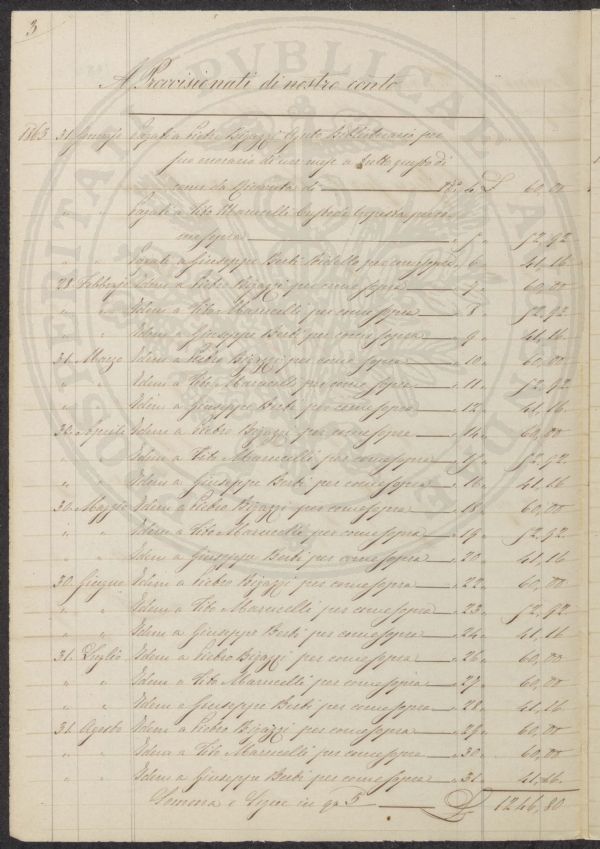 3
A Provvisionati di nostro conto
1863 31 Gennajo Pagati a Pietro Bigazzi Ajuto Bibliotecario per
sua onorario di un mese a tutto questo dì
come da Giornata di N.° 4 L 60,00
" " Pagati a Tito Marucelli Custode
come sopra " 5 " 52,92
" " Pagati a Giuseppe Berti Bidello per come sopra " 6 " 41,16
28 Febbrajo Idem a Pietro Bigazzi per come sopra " 7 " 60,00
" " Idem a Tito Marucelli per come sopra " 8 " 52,92
" " Idem a Giuseppe Berti per come sopra " 9 " 41,16
31 Marzo Idem a Pietro Bigazzi per come sopra " 10 " 60,00
" " Idem a Tito Marucelli per come sopra " 11 " 52,92
" " Idem a Giuseppe Berti per come sopra " 12 " 41,16
30 Aprile Idem a Pietro Bigazzi per come sopra " 14 " 60,00
" " Idem a Tito Marucelli per come sopra " 15 " 52,92
" " Idem a Giuseppe Berti per come sopra " 16 " 41,16
30 Maggio Idem a Pietro Bigazzi per come sopra " 18 " 60,00
" " Idem a Tito Marucelli per come sopra " 19 " 52,92
" " Idem a Giuseppe Berti per come sopra " 20 " 41,16
30 Giugno Idem a Pietro Bigazzi per come sopra " 22 " 60,00
" " Idem a Tito Marucelli per come sopra " 23 " 52,92
" " Idem a Giuseppe Berti per come sopra " 24 " 41,16
31 Luglio Idem a Pietro Bigazzi per come sopra " 26 " 60,00
" " Idem a Tito Marucelli per come sopra " 27 " 60,00
" " Idem a Giuseppe Berti per come sopra " 28 " 41,16
31 Agosto Idem a Pietro Bigazzi per come sopra " 29 " 60,00
" " Idem a Tito Marucelli per come sopra " 30 " 60,00
" " Idem a Giuseppe Berti per come sopra " 31 " 41,16
Somma e Segue in q.° 5 L 1246,80